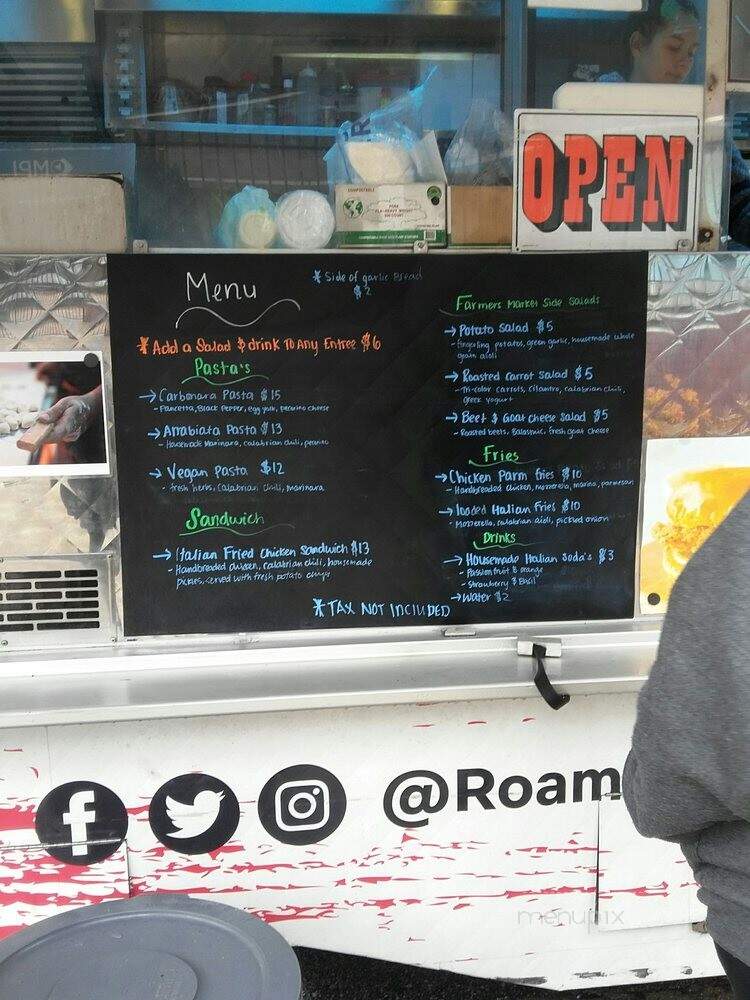 OPEN
COMPOSTABLE
Menu
* Side of garlic Bread
$2
* Add a Salad & drink To Any Entree $6
Pasta's
→ Carbonara Pasta $15
- Pancetta, Black Pepper, egg yolk, pecorino cheese
→ Arrabiata Pasta $13
- Housemade Marinara, calabrian chili, pecorino
→ Vegan Pasta $12
- fresh herbs, Calabrian chili, marinara
Sandwich
→ Italian Fried Chicken Sandwich $13
- Handbreaded chicken, calabrian chili, housemade
pickles, served with fresh potato chips
Farmers Market Side Salads
→ Potato Salad $5
- fingerling potatos, green garlic, housemade whole
grain aioli
→ Roasted Carrot Salad $5
- Tri-color carrots, cilantro, calabrian chili,
greek yogurt
→ Beet & Goat Cheese Salad $5
- Roasted beets, Balasmic, fresh goat cheese
Fries
→ Chicken Parm fries $10
- Handbreaded chicken, mozzerella, marina, parmesan
→ loaded Italian Fries $10
- Mozzerella, calabrian aioli, pickled onion
Drinks
→ Housemade Italian Soda's $3
- Passionfruit & orange
- Strawberry & Basil
→ Water $2
* TAX NOT INCLUDED
@Roam
menupix